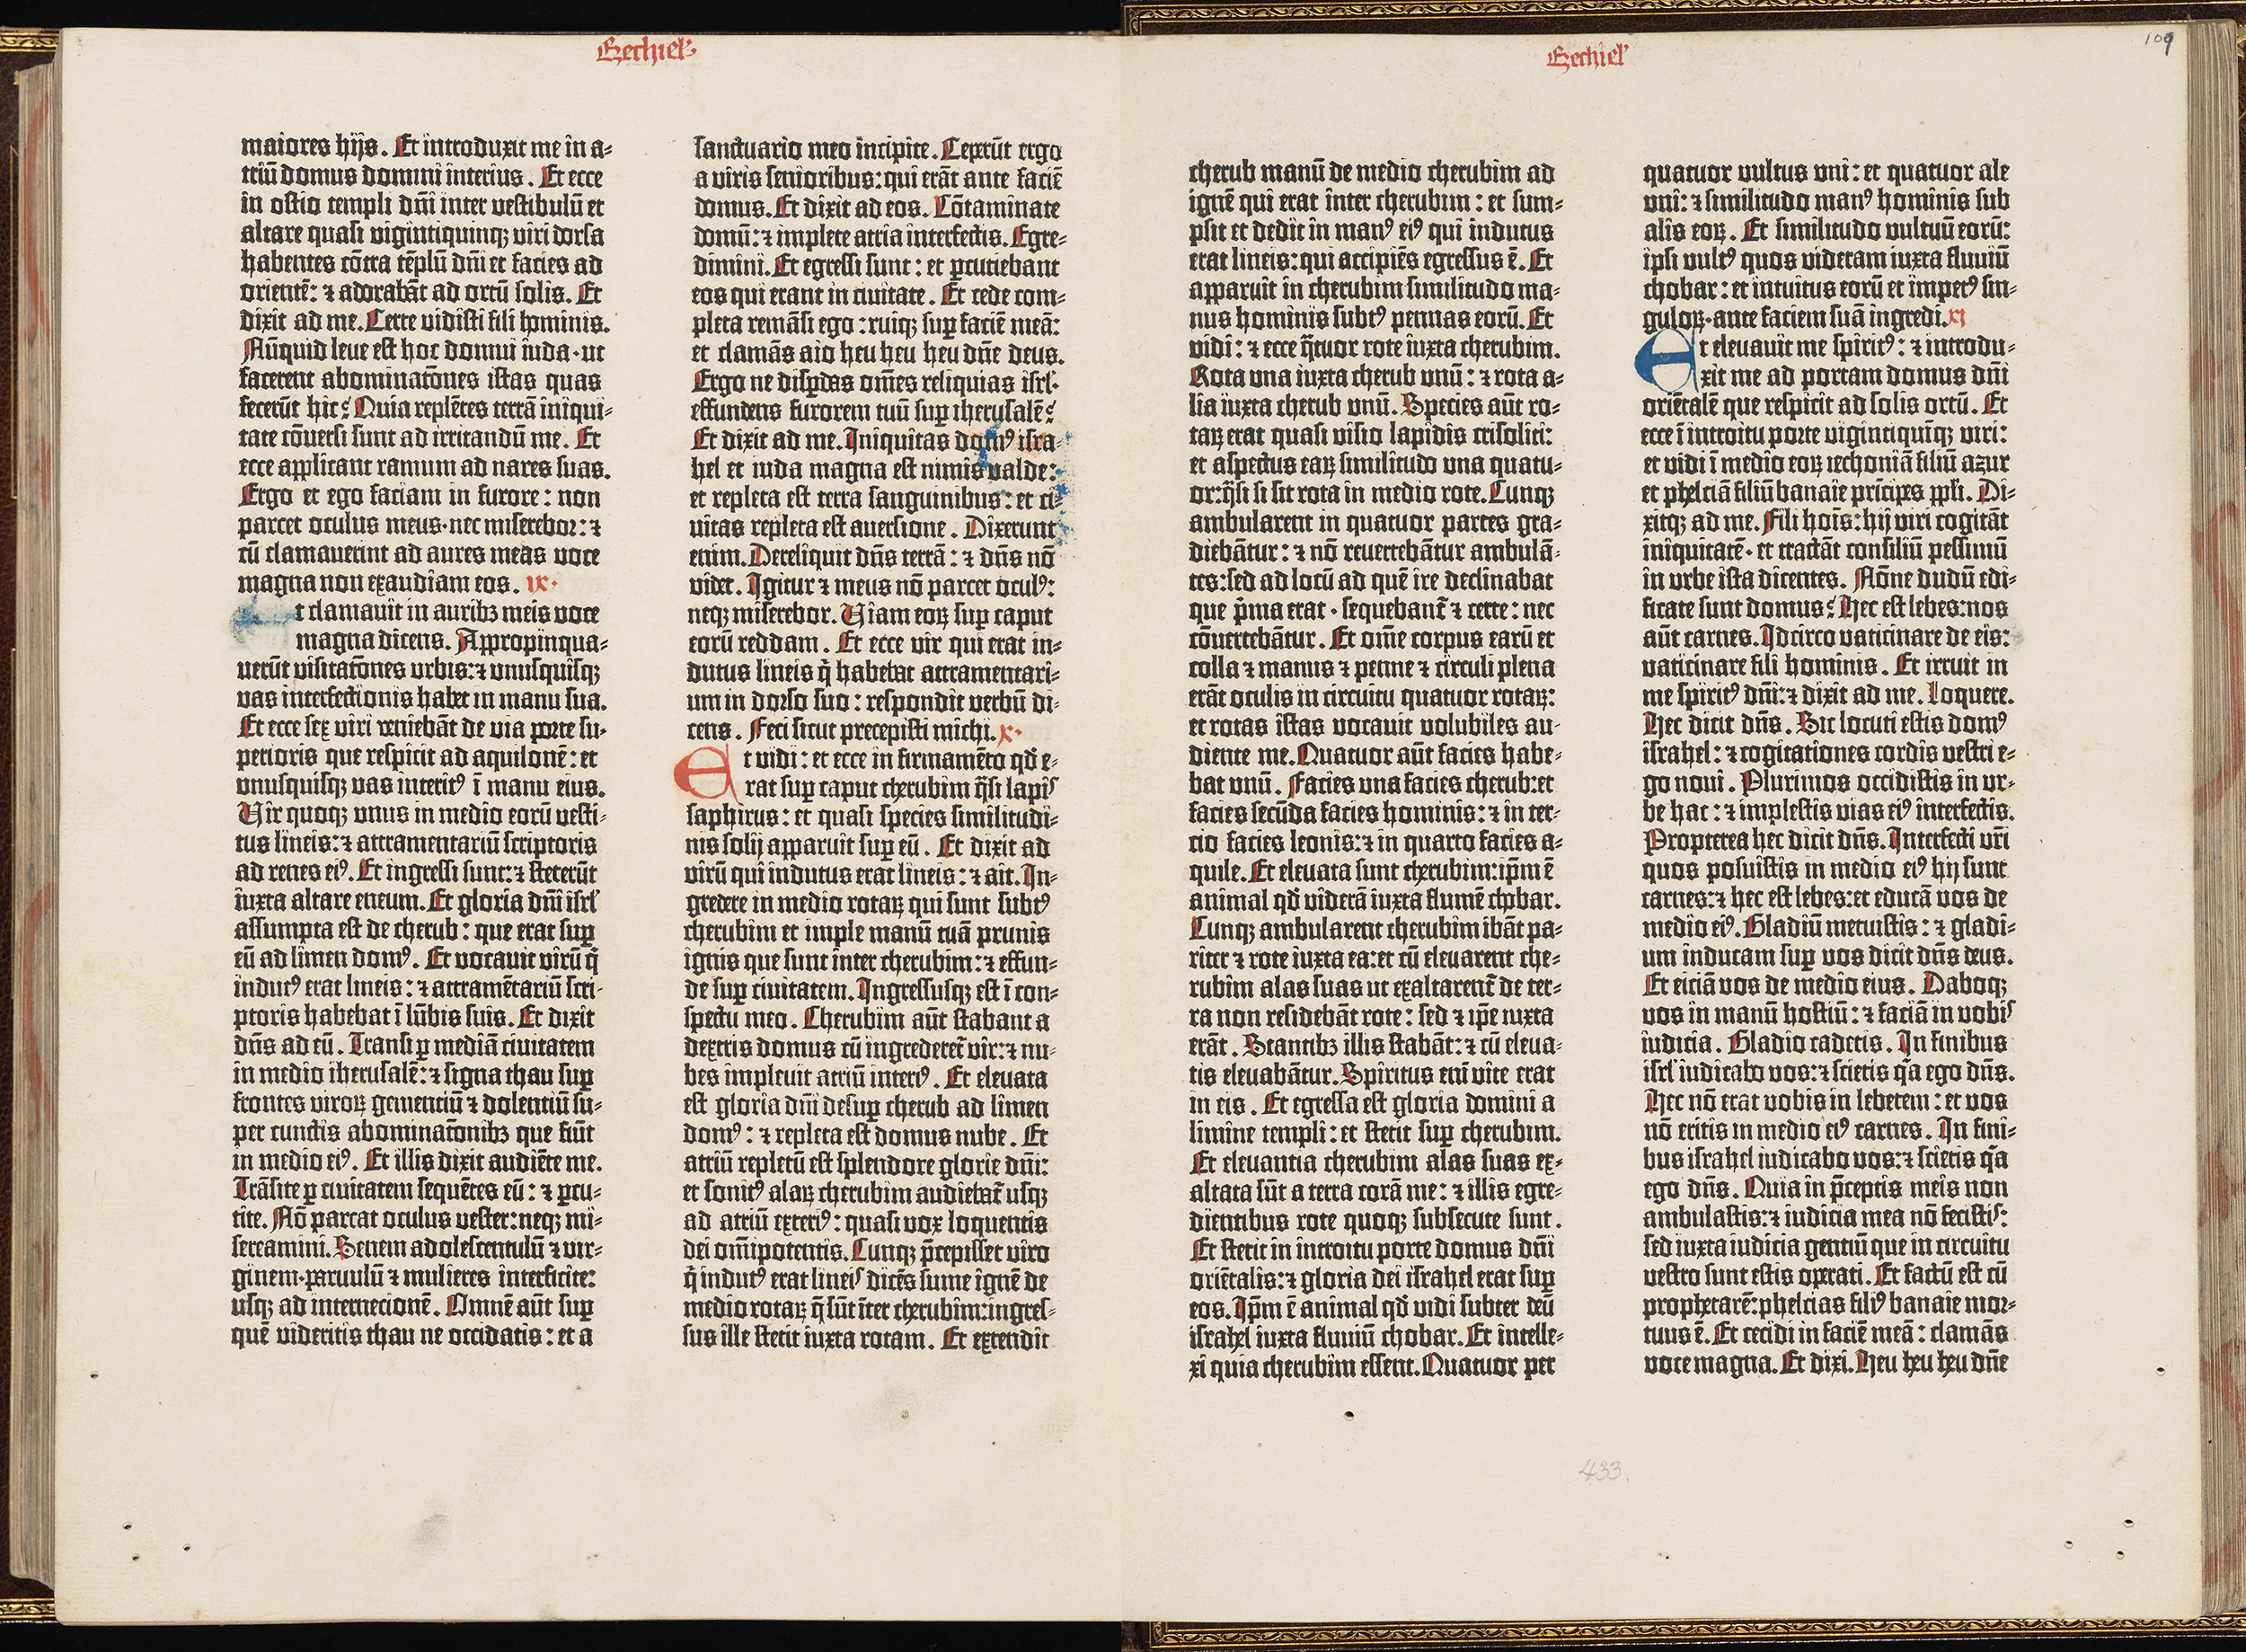 Ezechiel·
maiores hijs. Et introduxit me in a-
triū domus domini interius. Et ecce
in ostio templi dn̄i inter vestibulū et
altare quasi vigintiquinq; viri dorsa
habentes cōtra tēplū dn̄i et facies ad
orientē: ⁊ adorabāt ad ortū solis. Et
dixit ad me. Certe vidisti fili hominis.
Nūquid leve est hoc domui iuda·ut
facerent abominatōnes istas quas
fecerūt hic? Quia replētes terrā iniqui-
tate cōversi sunt ad irritandū me. Et
ecce applicant ramum ad nares suas.
Ergo et ego faciam in furore: non
parcet oculus meus·nec miserebor: ⁊
cū clamaverint ad aures meas voce
magna non exaudiam eos. ix·
Et clamavit in auribꝫ meis voce
magna dicens. Appropinqua-
verūt visitatōnes urbis: ⁊ unusquisq;
vas interfectionis habet in manu sua.
Et ecce sex viri veniebāt de via porte su-
perioris que respicit ad aquilonē: et
unusquisq; vas interitꝰ ī manu eius.
Vir quoq; unus in medio eorū vesti-
tus lineis: ⁊ attramentariū scriptoris
ad renes eiꝰ. Et ingressi sunt: ⁊ steterūt
iuxta altare eneum. Et gloria dn̄i isrl'
assumpta est de cherub: que erat suꝑ
eū ad limen domꝰ. Et vocavit virū q̄
indutꝰ erat lineis: ⁊ attramētariū scri-
ptoris habebat ī lūbis suis. Et dixit
dn̄s ad eū. Transi ꝑ mediā civitatem
in medio iherusalē: ⁊ signa thau suꝑ
frontes viroꝝ gemenciū ⁊ dolentiū su-
per cunctis abominatōnibꝫ que fiūt
in medio eiꝰ. Et illis dixit audiēte me.
Trāsite ꝑ civitatem sequētes eū: ⁊ ꝑcu-
tite. Nō parcat oculus vester: neq; mi-
sereamini. Senem adolescentulū ⁊ vir-
ginem·parvulū ⁊ mulieres interficite:
usq; ad internecionē. Omnē aūt suꝑ
quē videritis thau ne occidatis: et a
sanctuario meo incipite. Ceperūt ergo
a viris senioribus: qui erāt ante faciē
domus. Et dixit ad eos. Cōtaminate
domū: ⁊ implete atria interfectis. Egre-
dimini. Et egressi sunt: et ꝑcutiebant
eos qui erant in civitate. Et cede com-
pleta remāsi ego: ruiq; suꝑ faciē meā:
et clamās aio heu heu heu dn̄e deus.
Ergo ne disꝑdes om̄es reliquias isrl'·
effundens furorem tuū suꝑ iherusalē?
Et dixit ad me. Iniquitas domꝰ isra-
hel et iuda magna est nimis valde:
et repleta est terra sanguinibus: et ci-
vitas repleta est aversione. Dixerunt
enim. Dereliquit dn̄s terrā: ⁊ dn̄s nō
videt. Igitur ⁊ meus nō parcet oculꝰ:
neq; miserebor. Viam eoꝝ suꝑ caput
eorū reddam. Et ecce vir qui erat in-
dutus lineis q̄ habebat attramentari-
um in dorso suo: respondit verbū di-
cens. Feci sicut precepisti michi. x·
Et vidi: et ecce in firmamēto qd̄ e-
rat suꝑ caput cherubim q̄si lapis
saphirus: et quasi species similitudi-
nis solij apparuit suꝑ eū. Et dixit ad
virū qui indutus erat lineis: ⁊ ait. In-
gredere in medio rotaꝝ qui sunt subtꝰ
cherubim et imple manū tuā prunis
ignis que sunt inter cherubim: ⁊ effun-
de suꝑ civitatem. Ingressusq; est ī con-
spectu meo. Cherubim aūt stabant a
dextris domus cū ingrederet̄ vir: ⁊ nu-
bes implevit atriū interiꝰ. Et elevata
est gloria dn̄i desuꝑ cherub ad limen
domꝰ: ⁊ repleta est domus nube. Et
atriū repletū est splendore glorie dn̄i:
et sonitꝰ alaꝝ cherubim audiebat̄ usq;
ad atriū exteriꝰ: quasi vox loquentis
dei om̄ipotentis. Cunq; p̄cepisset viro
q̄ indutꝰ erat lineis dicēs sume ignē de
medio rotaꝝ q̄ sūt īter cherubim: ingres-
sus ille stetit iuxta rotam. Et extendit
Ezechiel'
109
cherub manū de medio cherubim ad
ignē qui erat inter cherubim: et sum-
psit et dedit in manꝰ eiꝰ qui indutus
erat lineis: qui accipiēs egressus ē. Et
apparuit in cherubim similitudo ma-
nus hominis subtꝰ pennas eorū. Et
vidi: ⁊ ecce q̄tuor rote iuxta cherubim.
Rota una iuxta cherub unū: ⁊ rota a-
lia iuxta cherub unū. Species aūt ro-
taꝝ erat quasi visio lapidis crisoliti:
et aspectus eaꝝ similitudo una quatu-
or: q̄si si sit rota in medio rote. Cunq;
ambularent in quatuor partes gra-
diebātur: ⁊ nō revertebātur ambulā-
tes: sed ad locū ad quē ire declinabat
que p̄ma erat·sequebant̄ ⁊ cetere: nec
cōvertebātur. Et om̄e corpus earū et
colla ⁊ manus ⁊ penne ⁊ circuli plena
erāt oculis in circuitu quatuor rotaꝝ:
et rotas istas vocavit volubiles au-
diente me. Quatuor aūt facies habe-
bat unū. Facies una facies cherub: et
facies secūda facies hominis: ⁊ in ter-
cio facies leonis: ⁊ in quarto facies a-
quile. Et elevata sunt cherubim: ip̄m ē
animal qd̄ viderā iuxta flumē chobar.
Cunq; ambularent cherubim ibāt pa-
riter ⁊ rote iuxta ea: et cū elevarent che-
rubim alas suas ut exaltarent̄ de ter-
ra non residebāt rote: sed ⁊ ip̄e iuxta
erāt. Stantibꝫ illis stabāt: ⁊ cū eleva-
tis elevabātur. Spiritus eni vite erat
in eis. Et egressa est gloria domini a
limine templi: et stetit suꝑ cherubim.
Et elevantia cherubim alas suas ex-
altata sūt a terra corā me: ⁊ illis egre-
dientibus rote quoq; subsecute sunt.
Et stetit in introitu porte domus dn̄i
oriētalis: ⁊ gloria dei israhel erat suꝑ
eos. Ip̄m ē animal qd̄ vidi subter deū
israhel iuxta fluviū chobar. Et intelle-
xi quia cherubim essent. Quatuor per
quatuor vultus uni: et quatuor ale
uni: ⁊ similitudo manꝰ hominis sub
alis eoꝝ. Et similitudo vultuū eorū:
ipsi vultꝰ quos videram iuxta fluviū
chobar: et intuitus eorū et impetꝰ sin-
guloꝝ·ante faciem suā ingredi. xi
Et elevavit me spiritꝰ: ⁊ introdu-
xit me ad portam domus dn̄i
oriētalē que respicit ad solis ortū. Et
ecce ī introitu porte vigintiquīq; viri:
et vidi ī medio eoꝝ iechoniā filiū azur
et pheltiā filiū banaie prīcipes ppl̄i. Di-
xitq; ad me. Fili hoīs: hij viri cogitāt
iniquitatē·et tractāt consiliū pessimū
in urbe ista dicentes. Nōne dudū edi-
ficate sunt domus? Hec est lebes: nos
aūt carnes. Idcirco vaticinare de eis:
vaticinare fili hominis. Et irruit in
me spiritꝰ dn̄i: ⁊ dixit ad me. Loquere.
Hec dicit dn̄s. Sic locuti estis domꝰ
israhel: ⁊ cogitationes cordis vestri e-
go novi. Plurimos occidistis in ur-
be hac: ⁊ implestis vias eiꝰ interfectis.
Propterea hec dicit dn̄s. Interfecti vr̄i
quos posuistis in medio eiꝰ hij sunt
carnes: ⁊ hec est lebes: et educā vos de
medio eiꝰ. Gladiū metuistis: ⁊ gladi-
um inducam suꝑ vos dicit dn̄s deus.
Et eiciā vos de medio eius. Daboq;
vos in manū hostiū: ⁊ faciā in vobis
iudicia. Gladio cadetis. In finibus
isrl' iudicabo vos: ⁊ scietis q̄a ego dn̄s.
Hec nō erat vobis in lebetem: et vos
nō eritis in medio eiꝰ carnes. In fini-
bus israhel iudicabo vos: ⁊ scietis q̄a
ego dn̄s. Quia in p̄ceptis meis non
ambulastis: ⁊ iudicia mea nō fecistis:
sed iuxta iudicia gentiū que in circuitu
vestro sunt estis operati. Et factū est cū
prophetarē: pheltias filiꝰ banaie mor-
tuus ē. Et cecidi in faciē meā: clamās
voce magna. Et dixi. Heu heu heu dn̄e
433.